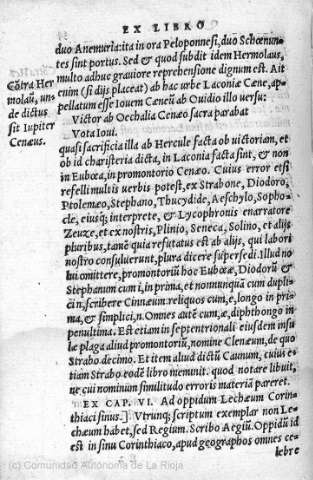 EX LIBRO
duo Anemuria: ita in ora Peloponnesi, duo Schœnun-
tes sint portus. Sed & quod subdit idem Hermolaus,
multo adhuc graviore reprehensione dignum est. Ait
enim (si dijs placeat) ab hac urbe Laconiæ Cæne, ap-
pellatum esse Iovem Cæneũ ab Ouidio illo uersu:
Cõtra Her
molaũ, un-
de dictus
sit Iupiter
Cenæus.
Victor ab Oechalia Cenæo sacra parabat
Vota Ioui.
quasi sacrificia illa ab Hercule facta ob uictoriam, et
ob id charisteria dicta, in Laconia facta sint, & non
in Eubœa, in promontorio Cenæo. Cuius error etsi
refelli multis uerbis potest, ex Strabone, Diodoro,
Ptolemæo, Stephano, Thucydide, Aeschylo, Sopho-
cle, eiusq; interprete, & Lycophronis enarratore
Zeuze, et ex nostris, Plinio, Seneca, Solino, et alijs
pluribus, tanẽ quia refutatus est ab alijs, qui labori
nostro consuluerunt, plura dicere supersedi. Illud no
lui omittere, promontoriũ hoc Eubœæ, Diodorũ &
Stephanum cum i, in prima, et nõ nunquã cum dupli-
ci n, scribere Cinnæum reliquos cum, e, longo in pri-
ma, & simplici, n. Omnes autẽ cum, æ, diphthongo in
penultima. Est etiam in septentrionali eiusdem insu
læ plaga aliud promontoriũ, nomine Clenæum, de quo
Strabo decimo. Et item aliud dictũ Caunum, cuius e-
tiam Strabo eodẽ libro meminit. quod notare libuit,
ne cui nominum similitudo erroris materiã pareret.
EX CAP. VI. Ad oppidum Lechæum Corin-
thiaci sinus.] Vtrunq; scriptum exemplar non Le-
chæum habet, sed Regium. Scribo Aegiũ. Oppidũ id
est in sinu Corinthiaco, apud geographos omnes ce-
lebre
(c) Comunidad Autónoma de La Rioja